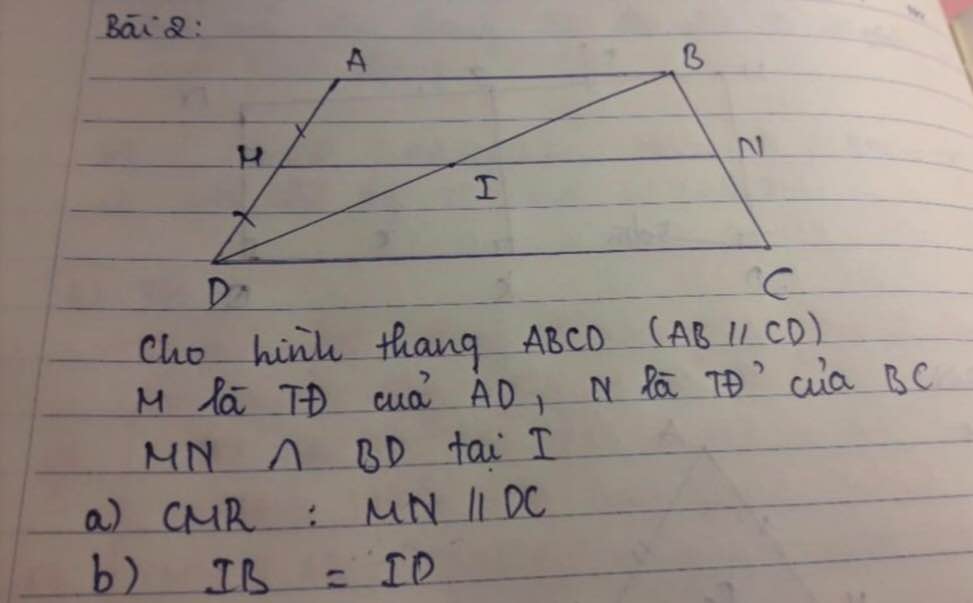 Bài 2:
A B
M N
I
D C
Cho hình thang ABCD (AB // CD)
M là TĐ cuả AD, N là TĐ của BC
MN ∩ BD tại I
a) CMR : MN // DC
b) IB = ID